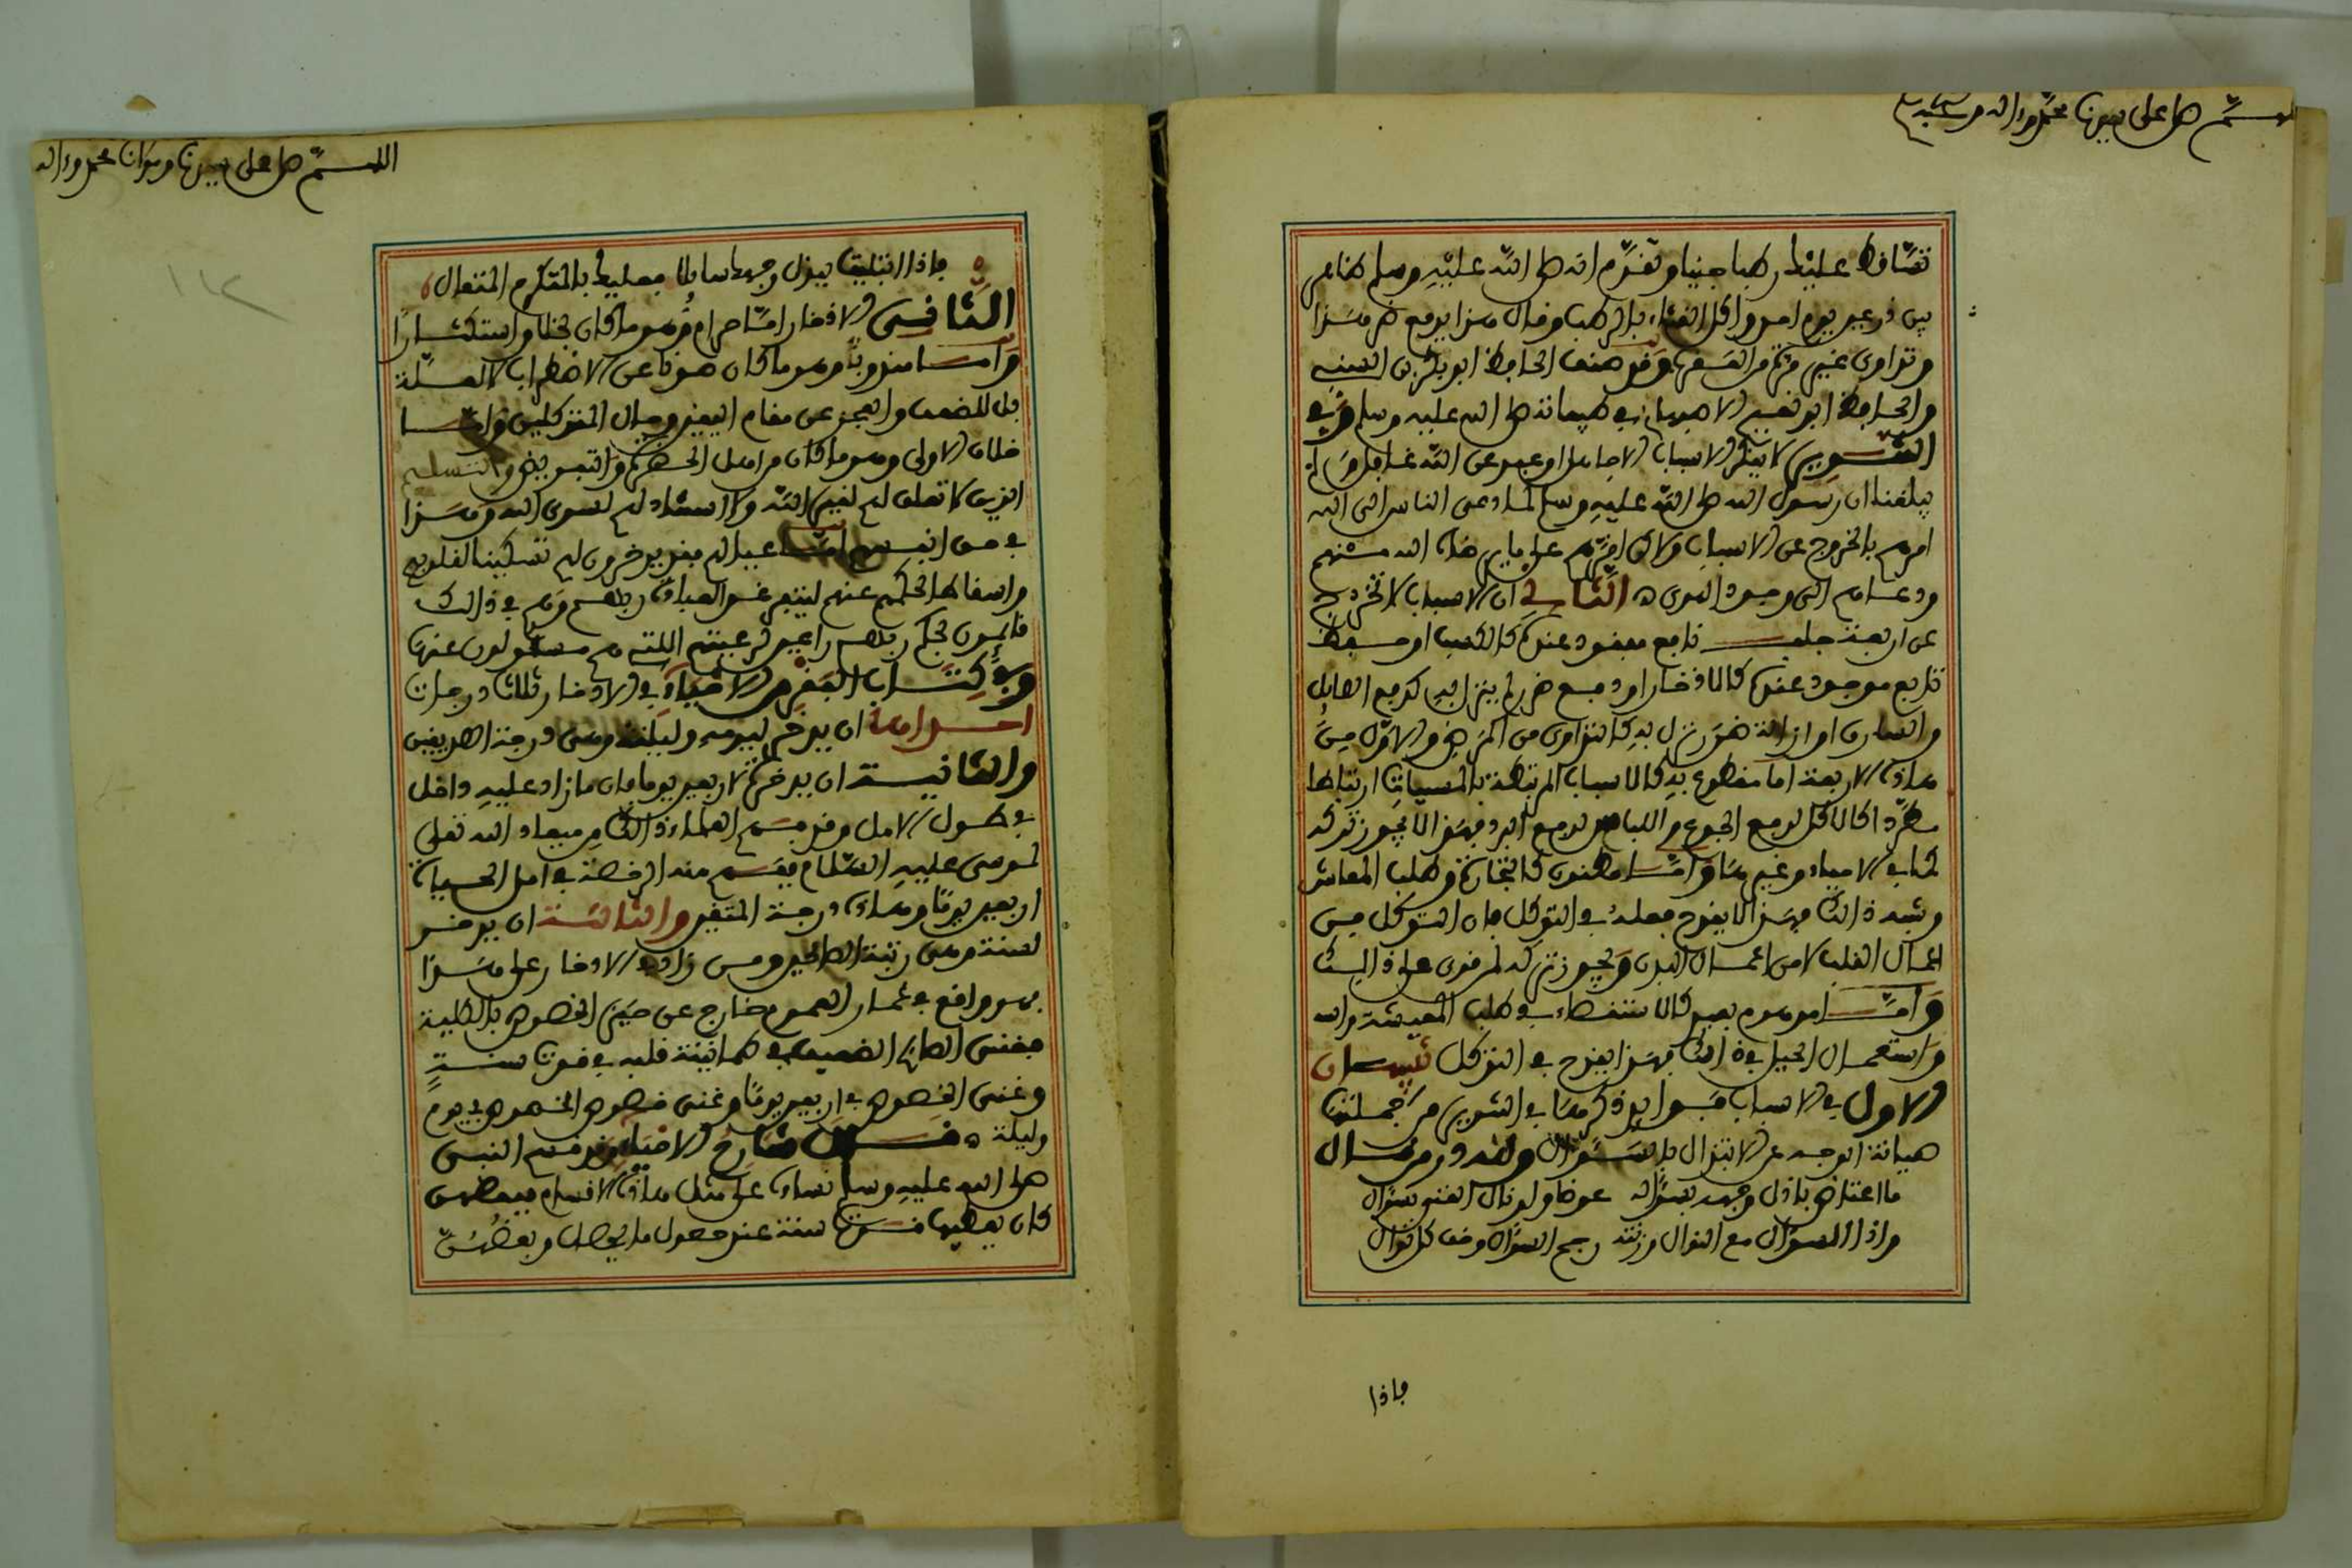 اللهم صل على سيدنا محمد وءاله وصحبه
تساقط عليك رطبا جنيا وتقدم انه صلى الله عليه وسلم ظاهر
بين درعين يوم احد واكل القثاء بالرطب وقال هذا يدفع ضر هذا
وتداوى غير مرة من العقرب وقد صنف الحافظ ابو بكر بن السني
والحافظ ابو نعيم الاصبهاني في طبه صلى الله عليه وسلم وفي
التنوير لا ينكر الاسباب الا جاهل او عبد عن الله غافل ولم
يبلغنا ان رسول الله صلى الله عليه وسلم لما دعى الناس الى الله
امرهم بالخروج عن الاسباب ولاكن اقرهم على ما يرضاه الله منهم
ودعاهم الى وجود الهدى الثاني ان الاسباب لا تخرج
عن اربعة جلب نافع مفقود عندك كالكسب او حفظ
نافع موجود عندك كالادخار او دفع ضر لم ينزل بك كدفع الصايل
والسارق او ازالة ضر نزل بك كالتداوى من المرض والاول من
هاذه الاربعة اما مقطوع به كالاسباب المرتبطة بالمسببات ارتباطا
مطردا كالاكل لدفع الجوع واللباس لدفع البرد فهذا لا يجوز تركه
كما في الاحياء وغيرها واما مظنون كالتجارة وطلب المعاش
وشبه ذالك فهذا لا يقدح فعله في التوكل فان التوكل من
اعمال القلب لا من اعمال البدن ويجوز تركه لمن قوى على ذالك
واما موهوم بعيد كالاستقصاء في طلب المعيشة
واستعمال الحيل في ذالك فهذا يقدح في التوكل تنبيهان
الاول في الاسباب فوايد ذكرها في التنوير من جملتها
صيانة الوجه عن الابتذال بالسؤال ولله در من قال
ما اعتاض باذل وجهه بسؤاله عوضا ولو نال الغنى بسؤال
واذا السؤال مع النوال وزنته رجح السؤال وخف كل نوال
فاذا
اللهم صل على سيدنا ومولانا محمد وءاله
فاذا ابتليت ببذل وجهك سائلا فعليك بالمتكرم المتفضال
الثاني الادخار اما حرام وهو ما كان بخلا واستكثارا
واما مندوبا وهو ما كان صونا عن الاضطراب لا لعلة
بل للضعف والعجز عن مقام اليقين وحال المتوكلين واما
خلاف الاولى وهو ما كان من اهل الحضرة والتفويض والتسليم
الذين لا تعلق لهم لغير الله ولا استناد لهم لسوى الله وهذا
في حق انفسهم اما عيالهم فقد يدخرون لهم تسكينا لقلوبهم
واسقاطا لحكم عنهم ليتفرغوا لعبادة ربهم وهم في ذالك
قائمون بحكم ربهم راعين لرعيتهم اللتي هم مسئولون عنها
وفي كتاب الفقر من الاحياء في الادخار ثلاث درجات
احداها ان يدخر ليومه وليلته وهي درجة الصديقين
والثانية ان يدخر لاربعين يوما فان ما زاد عليه داخل
في طول الامل وقد فهم العلماء ذالك من ميعاد الله تعلى
لموسى عليه السلام ففهم منه الرخصة في امل الحياة
اربعين يوما وهاذه درجة المتقين والثالثة ان يدخر
لسنة وهي رتبة الصالحين ومن زاد في الادخار على هذا
فهو واقع في غمار العموم خارج عن حيز الخصوص بالكلية
فغنى الصالح الضعيف في طمانينة قلبه في قوت سنة
وغنى الخصوص في اربعين يوما وغنى خصوص الخصوص في يوم
وليلة قال شارح الاحياء وقد قسم النبي
صلى الله عليه وسلم نساءه على مثل هاذه الاقسام فبعضهن
كان يعطيها قوت سنة عند حصول ما يحصل وبعضهن